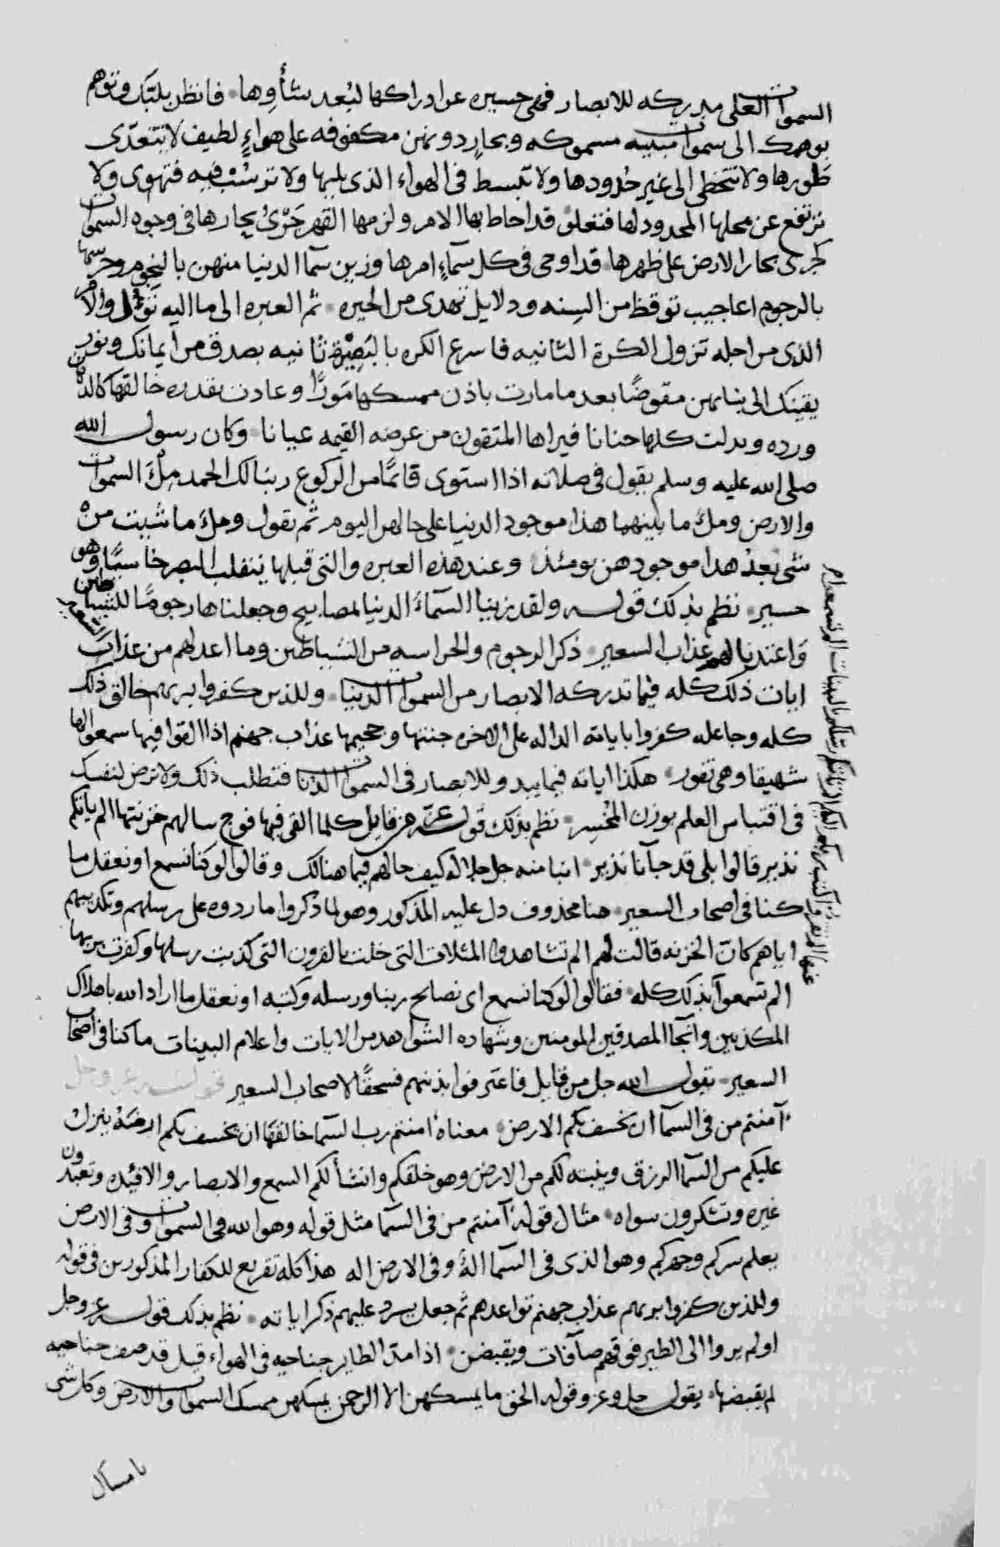 السموات العلى مدركه للابصار فهى حسيره عن ادراكها لبعد شأوها فانظر بلبك وتوهم
بوهمك الى سموات مبنيه مسموكه وبحار دونهن مكفوفه على هواء لطيف لا تتعدى
طورها ولا تتخطى الى غير حدودها ولا تبسط فى الهواء الذى يليها ولا ترسب فيه فتهوى ولا
ترتفع عن محلها المحدود لها فتعلو قد احاط بها الامر ولزمها القهر جرى بحارها فى وجوه السموات
كجرى بحار الارض على ظهرها قد اوحى فى كل سماء امرها وزين سما الدنيا منهن بالنجوم وحرسها
بالرجوم اعاجيب توقظ من السنه ودلايل تهدى من الحيره ثم العبره الى ما اليه تؤل والامر
الذى من اجله تزول الكرة الثانيه فاسرع الكره بالبصيرة ثانيه بصدق من ايمانك ونور من
يقينك الى بنايهن مقوضا بعد ما مارت باذن ممسكها مورا وعادت بقدره خالقها كالدهان
ورده وبدلت كلها جنانا فيراها المتقون من عرصه القيمه عيانا وكان رسول الله
صلى الله عليه وسلم يقول فى صلاته اذا استوى قائما من الركوع ربنا لك الحمد ملء السموات
والارض وملء ما بينهما هذا موجود الدنيا على حالهن اليوم ثم يقول وملء ما شيت من
شى بعد هذا موجودهن يومئذ وعند هذه العبره والتى قبلها ينقلب البصر خاسئا وهو
حسير نظم بذلك قوله ولقد زينا السماء الدنيا بمصابيح وجعلناها رجوما للشياطين
واعتدنا لهم عذاب السعير ذكر الرجوم والحراسه من الشياطين وما اعد لهم من عذاب السعير
ايات ذلك كله فيما تدركه الابصار من السموات الدنيا وللذين كفروا بربهم خالق ذلك
كله وجاعله كفروا باياته الداله على الاخره جنتها وجحيمها عذاب جهنم اذا القوا فيها سمعوا لها
شهيقا وهى تفور هكذا اياته فيما يبدو للابصار فى السموات الدنا فتطلب ذلك ولا ترض لنفسك
فى اقتباس العلم بوزن المخسر نظم بذلك قوله عز من قايل كلما القى فيها فوج سالهم خزنتها الم ياتكم
نذير قالوا بلى قد جآنا نذير انبا منه جل جلاله كيف حالهم فيما هنالك وقالوا لو كنا نسمع او نعقل ما
كنا فى اصحاب السعير هنا محذوف دل عليه المذكور وهو لما ذكروا ما ردوه على رسلهم وتكذيبهم
اياهم كان الخزنه قالت لهم الم تشاهدوا المثلات التى خلت بالقرون التى كذبت رسلها وكفرت بربها
الم تسمعوا بذلك كله فقالوا لو كنا نسمع اى نصائح ربنا ورسله وكتبه او نعقل ما اراد الله باهلاك
المكذبين وانجا المصدقين المومنين وشهاده الشواهد من الايات واعلام البينات ما كنا فى اصحاب
السعير يقول الله جل من قايل فاعترفوا بذنبهم فسحقا لاصحاب السعير قوله عز وجل
أمنتم من فى السما ان يخسف بكم الارض معناه أمنتم رب السما خالقها ان يخسف بكم ارضه ينزل
عليكم من السما الرزق وينبته لكم من الارض وهو خلقكم وانشا لكم السمع والابصار والافئده وتعبدون
غيره وتشكرون سواه مثال قوله أمنتم من فى السما مثل قوله وهو الله فى السموات وفى الارض
يعلم سركم وجهركم وهو الذى فى السما اله وفى الارض اله هذا كله تقريع للكفار المذكورين فى قوله
وللذين كفروا بربهم عذاب جهنم تواعدهم ثم جعل يسرد عليهم ذكر اياته نظم بذلك قوله عز وجل
اولم يروا الى الطير فوقهم صآفات ويقبضن اذا مد الطاير جناحيه فى الهواء قيل قد صف جناحيه
لم يقبضها يقول جل وعز وقوله الحق ما يمسكهن الا الرحمن يمسكهن ممسك السموات والارض وكل شى
بامساك